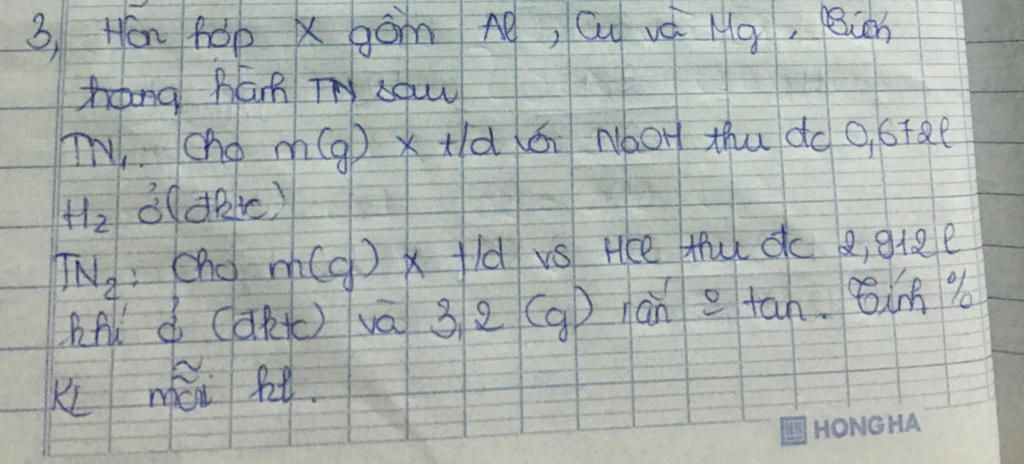 3, Hỗn hợp X gồm Al, Cu và Mg. Tiến
hành TN sau
TN₁: Cho m(g) X t/d với NaOH thu đc 0,672l
H₂ ở (đktc)
TN₂: Cho m(g) X t/d vs HCl thu đc 2,912l
khí ở (đktc) và 3,2 (g) rắn o tan. Tính %
KL mỗi kl.
HONG HA